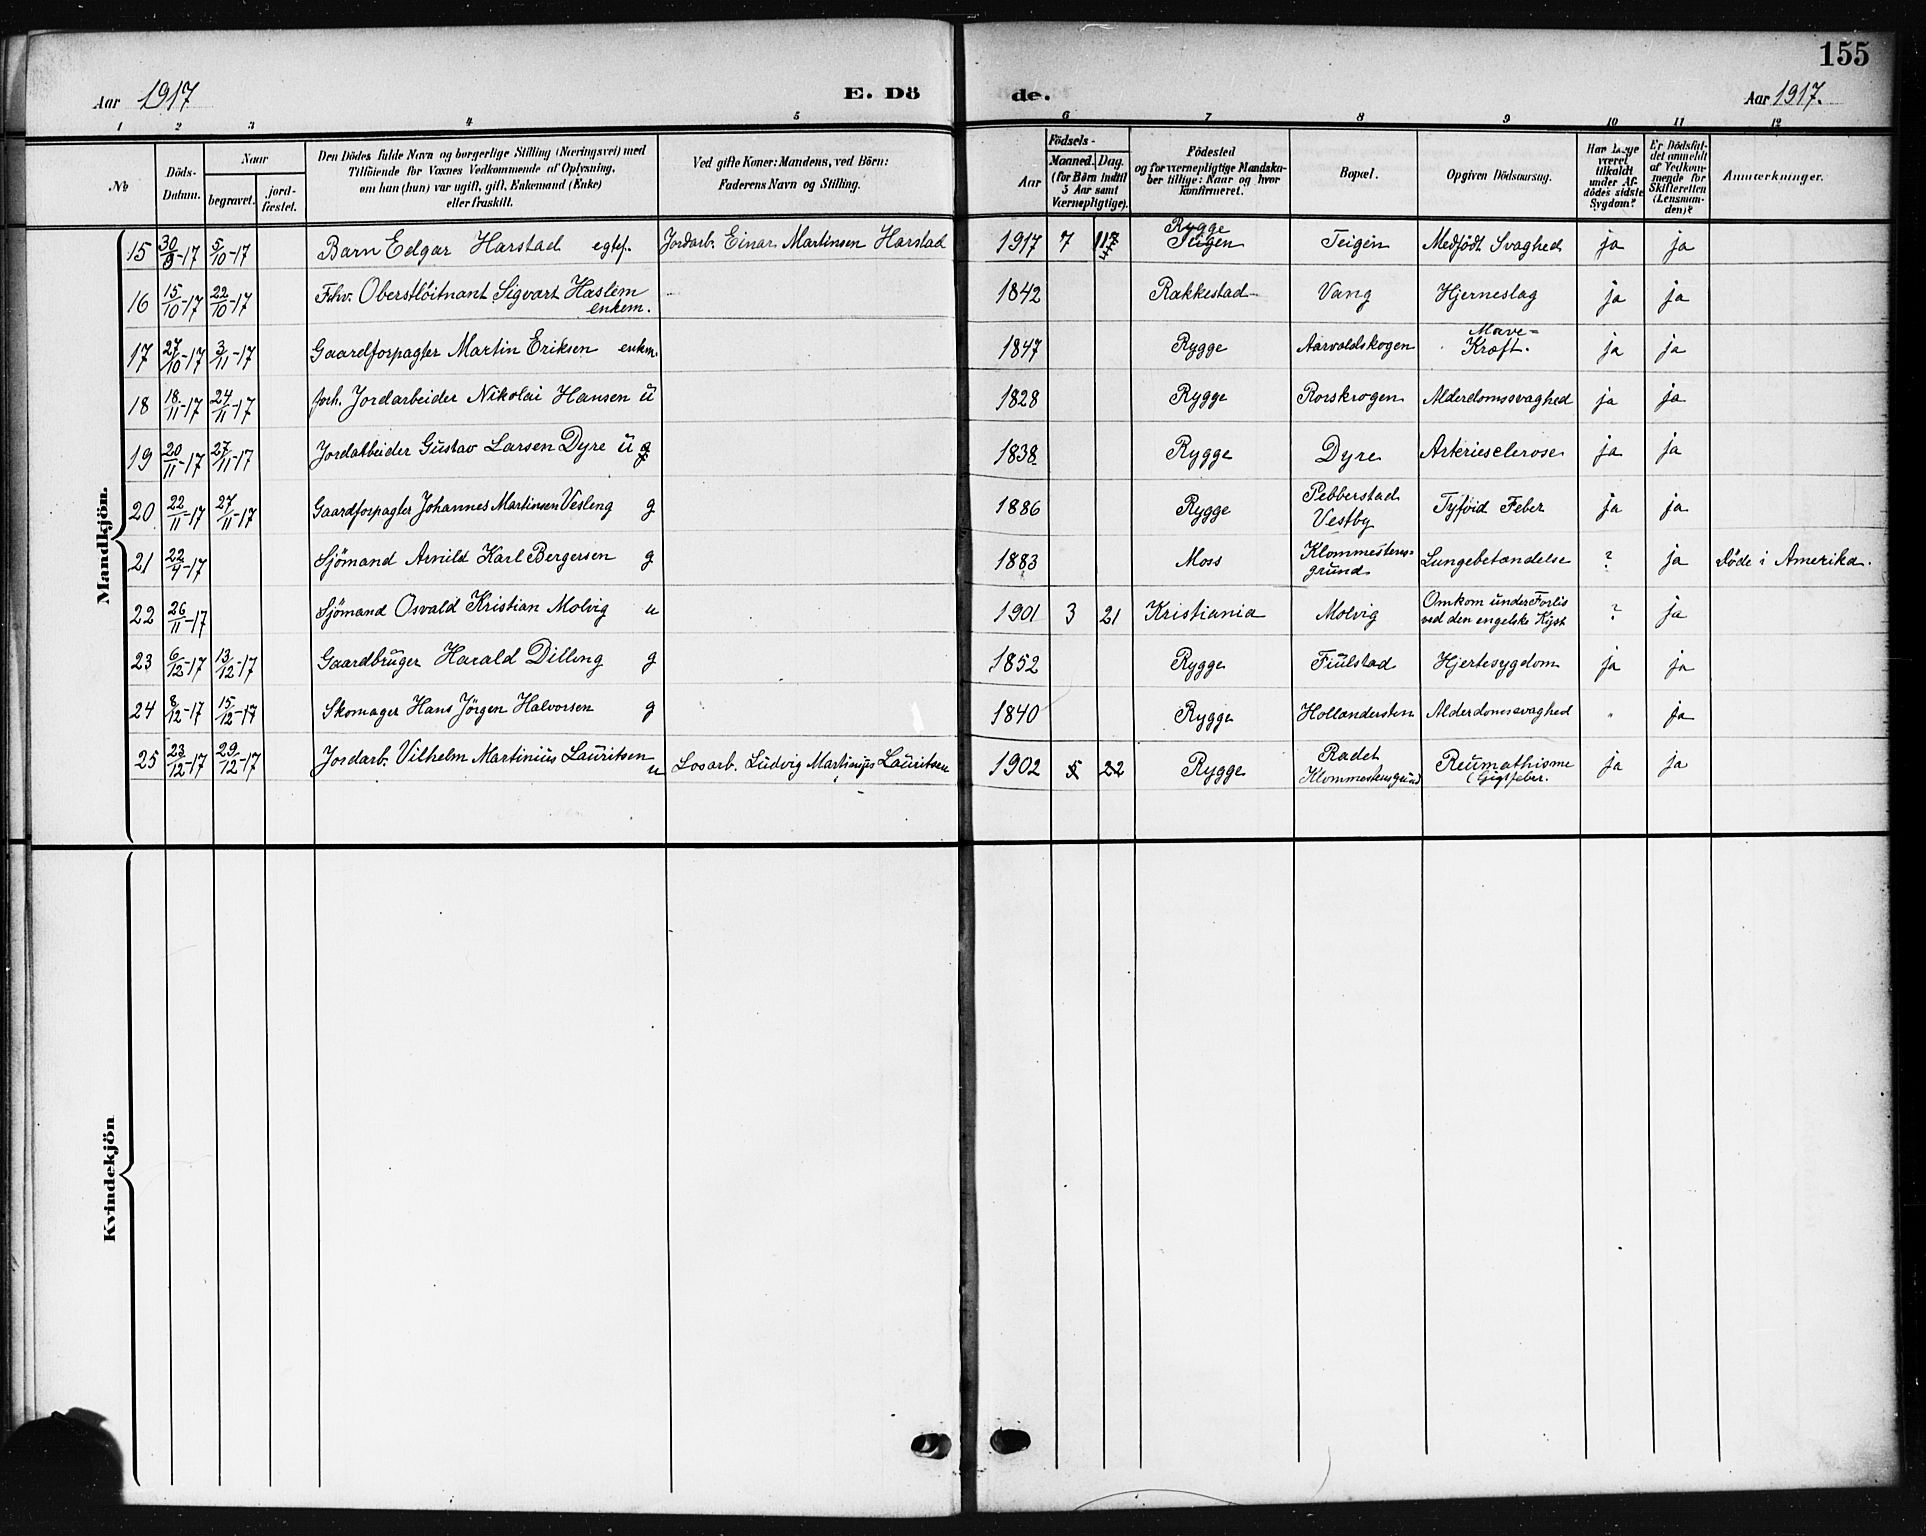 155
Aar 1917 E. Dö de. Aar 1917.
1 2 3 4 5 6 7 8 9 10 11 12
No
Döds-Datum.
Naar
begravet.
jord-fæstet.
Den Dödes fulde Navn og borgerlige Stilling (Næringsvei) med
Tilföiende for Voxnes Vedkommende af Oplysning,
om han (hun) var ugift, gift, Enkemand (Enke)
eller fraskilt.
Ved gifte Koner: Mandens, ved Börn:
Faderens Navn og Stilling.
Födsels-
Aar
Maaned. Dag.
(for Børn indtil
5 Aar samt
Værnepligtige).
Födested
og for værnepligtige Mandska-
ber tillige: Naar og hvor
konfirmeret.
Bopæl.
Opgiven Dödsaarsag.
Har Læge
været
tilkaldt
under Af-
dödes sidste
Sygdom?
Er Dödsfal-
det anmeldt
af Vedkom-
mende for
Skifteretten
(Lensman-
den)?
Anmærkninger.
Mandkjön.
15 30/9-17 5/10-17 Barn Edgar Harstad egtef. Jordarb. Einar Martinsen Harstad 1917 7 Rygge Teigen Teigen Medfödt Svaghed ja ja
16 15/10-17 22/10-17 Fhv. Oberstlöitnant Sigvart Haslem enkem. 1842 Rakkestad Vang Hjerneslag ja ja
17 27/10-17 3/11-17 Gaardforpagter Martin Eriksen enkm. 1847 Rygge Aarvoldskogen Mave-Kræft. ja ja
18 18/11-17 24/11-17 forh. Jordarbeider Nikolai Hansen u 1828 Rygge Rorskrogen Alderdomssvaghed ja ja
19 20/11-17 27/11-17 Jordarbeider Gustav Larsen Dyre u g 1838 Rygge Dyre Arteriesclerose ja ja
20 22/11-17 27/11-17 Gaardforpagter Johannes Martinsen Vesleng g 1886 Rygge Pebberstad Vestby Tyfoid Feber ja ja
21 22/9-17 Sjömand Arnild Karl Bergersen g 1883 Moss Klommestens-grund Lungebetændelse ? ja Döde i Amerika.
22 26/11-17 Sjömand Osvald Kristian Molvig u 1901 3 21 Kristiania Molvig Omkom under Forlis ved den engelske Kyst ? ja
23 6/12-17 13/12-17 Gaardbruger Harald Dilling g 1852 Rygge Fiulstad Hjertesygdom ja ja
24 8/12-17 15/12-17 Skomager Hans Jörgen Halvorsen g 1840 Rygge Hollandersten Alderdomssvaghed " ja
25 23/12-17 29/12-17 Jordarb. Vilhelm Martinius Lauritsen u Losarb. Ludvig Martinius Lauritsen 1902 5 22 Rygge Radet Klommestensgrund Reumathisme (Gigtfeber. ja ja
Kvindekjön